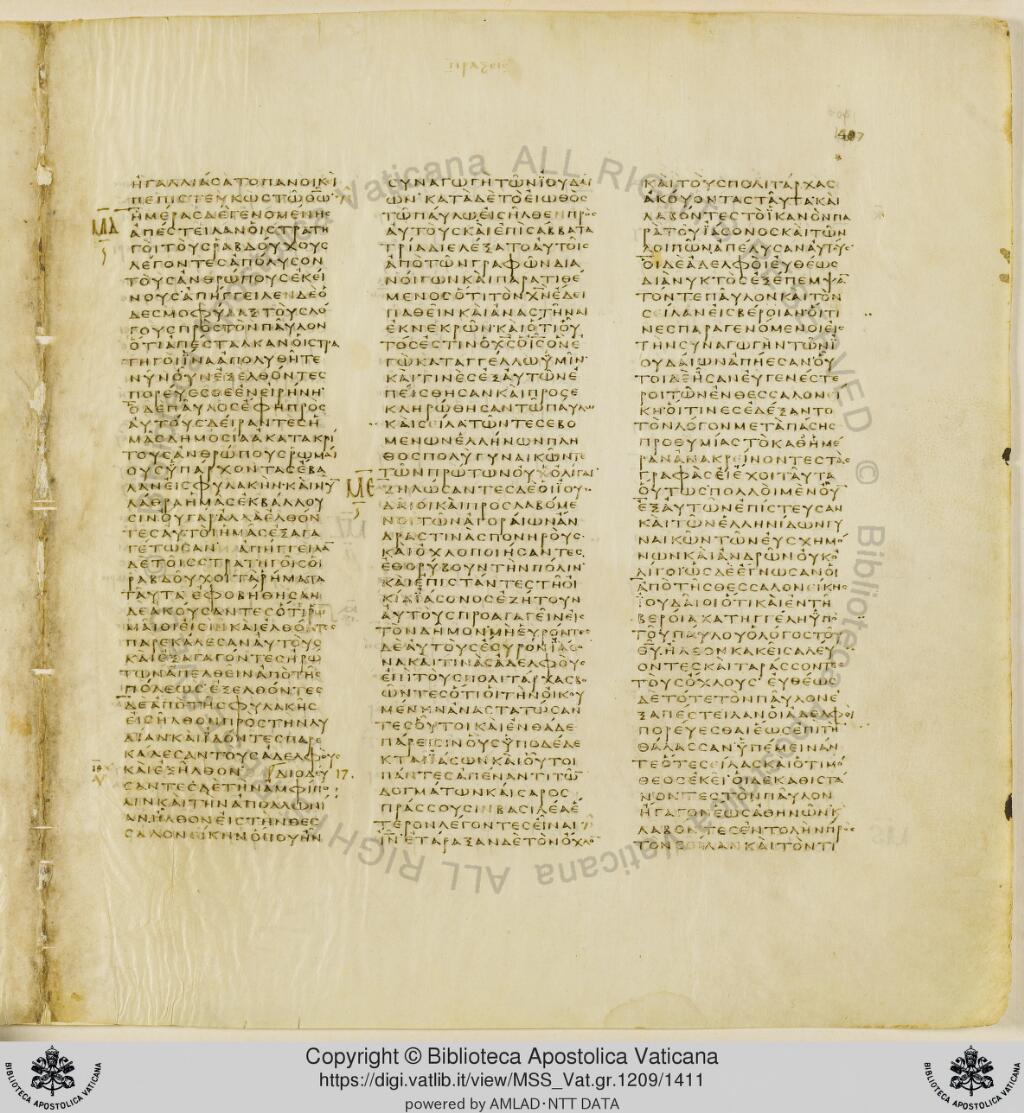 ΗΓΑΛΛΙΑϹΑΤΟΠΑΝΟΙΚΙ
ΠΕΠΙϹΤΕΥΚΩϹΤΩΘ̅Ω̅
ΜΔ
ΗΜΕΡΑϹΔΕΓΕΝΟΜΕΝΗϹ
ΑΠΕϹΤΕΙΛΑΝΟΙϹΤΡΑΤΗ
ΓΟΙΤΟΥϹΡΑΒΔΟΥΧΟΥϹ
ΛΕΓΟΝΤΕϹΑΠΟΛΥϹΟΝ
ΤΟΥϹΑΝΘΡΩΠΟΥϹΕΚΕΙ
ΝΟΥϹΑΠΗΓΓΕΙΛΕΝΔΕΟ
ΔΕϹΜΟΦΥΛΑΞΤΟΥϹΛΟ
ΓΟΥϹΠΡΟϹΤΟΝΠΑΥΛΟΝ
ΟΤΙΑΠΕϹΤΑΛΚΑΝΟΙϹΤΡΑ
ΤΗΓΟΙΙΝΑΑΠΟΛΥΘΗΤΕ
ΝΥΝΟΥΝΕΞΕΛΘΟΝΤΕϹ
ΠΟΡΕΥΕϹΘΕΕΝΕΙΡΗΝΗ
ΟΔΕΠΑΥΛΟϹΕΦΗΠΡΟϹ
ΑΥΤΟΥϹΔΕΙΡΑΝΤΕϹΗ
ΜΑϹΔΗΜΟϹΙΑΑΚΑΤΑΚΡΙ
ΤΟΥϹΑΝΘΡΩΠΟΥϹΡΩΜΑΙ
ΟΥϹΥΠΑΡΧΟΝΤΑϹΕΒΑ
ΛΑΝΕΙϹΦΥΛΑΚΗΝΚΑΙΝΥ̅
ΛΑΘΡΑΗΜΑϹΕΚΒΑΛΛΟΥ
ϹΙΝΟΥΓΑΡΑΛΛΑΕΛΘΟΝ
ΤΕϹΑΥΤΟΙΗΜΑϹΕΞΑΓΑ
ΓΕΤΩϹΑΝ ΑΠΗΓΓΕΙΛΑ̅
ΔΕΤΟΙϹϹΤΡΑΤΗΓΟΙϹΟΙ
ΡΑΒΔΟΥΧΟΙΤΑΡΗΜΑΤΑ
ΤΑΥΤΑΕΦΟΒΗΘΗϹΑΝ
ΔΕΑΚΟΥϹΑΝΤΕϹΟΤΙΡΩ
ΜΑΙΟΙΕΙϹΙΝΚΑΙΕΛΘΟΝΤΕϹ
ΠΑΡΕΚΑΛΕϹΑΝΑΥΤΟΥϹ
ΚΑΙΕΞΑΓΑΓΟΝΤΕϹΗΡΩ
ΤΩΝΑΠΕΛΘΕΙΝΑΠΟΤΗϹ
ΠΟΛΕΩϹΕΞΕΛΘΟΝΤΕϹ
ΔΕΑΠΟΤΗϹΦΥΛΑΚΗϹ
ΕΙϹΗΛΘΟΝΠΡΟϹΤΗΝΛΥ
ΔΙΑΝΚΑΙΪΔΟΝΤΕϹΠΑΡΕ
ΚΑΛΕϹΑΝΤΟΥϹΑΔΕΛΦΟΥϹ
ΚΑΙΕΞΗΛΘΟΝ ΔΙΟΔΕΥ 17.
ϹΑΝΤΕϹΔΕΤΗΝΑΜΦΙΠΟ
ΛΙΝΚΑΙΤΗΝΑΠΟΛΛΩΝΙ
ΑΝΗΛΘΟΝΕΙϹΤΗΝΘΕϹ
ϹΑΛΟΝΕΙΚΗΝΟΠΟΥΗΝ
ϹΥΝΑΓΩΓΗΤΩΝΪΟΥΔΑΙ
ΩΝΚΑΤΑΔΕΤΟΕΙΩΘΟϹ
ΤΩΠΑΥΛΩΕΙϹΗΛΘΕΝΠΡΟϹ
ΑΥΤΟΥϹΚΑΙΕΠΙϹΑΒΒΑΤΑ
ΤΡΙΑΔΙΕΛΕΞΑΤΟΑΥΤΟΙϹ
ΑΠΟΤΩΝΓΡΑΦΩΝΔΙΑ
ΝΟΙΓΩΝΚΑΙΠΑΡΑΤΙΘΕ
ΜΕΝΟϹΟΤΙΤΟΝΧ̅Ν̅ΕΔΕΙ
ΠΑΘΕΙΝΚΑΙΑΝΑϹΤΗΝΑΙ
ΕΚΝΕΚΡΩΝΚΑΙΟΤΙΟΥ
ΤΟϹΕϹΤΙΝΟΧ̅Ϲ̅ΟΙ̅Ϲ̅ΟΝΕ
ΓΩΚΑΤΑΓΓΕΛΛΩΫΜΙΝ
ΚΑΙΤΙΝΕϹΕΞΑΥΤΩΝΕ
ΠΕΙϹΘΗϹΑΝΚΑΙΠΡΟϹΕ
ΚΛΗΡΩΘΗϹΑΝΤΩΠΑΥΛΩ
ΚΑΙϹΙΛΑΤΩΝΤΕϹΕΒΟ
ΜΕΝΩΝΕΛΛΗΝΩΝΠΛΗ
ΘΟϹΠΟΛΥΓΥΝΑΙΚΩΝΤΕ
ΤΩΝΠΡΩΤΩΝΟΥΚΟΛΙΓΑΙ
ΜΕ
ΖΗΛΩϹΑΝΤΕϹΔΕΟΙΪΟΥ
ΔΑΙΟΙΚΑΙΠΡΟϹΛΑΒΟΜΕ
ΝΟΙΤΩΝΑΓΟΡΑΙΩΝΑΝ
ΔΡΑϹΤΙΝΑϹΠΟΝΗΡΟΥϹ
ΚΑΙΟΧΛΟΠΟΙΗϹΑΝΤΕϹ
ΕΘΟΡΥΒΟΥΝΤΗΝΠΟΛΙΝ
ΚΑΙΕΠΙϹΤΑΝΤΕϹΤΗΟΙ
ΚΙΑΪΑϹΟΝΟϹΕΖΗΤΟΥΝ
ΑΥΤΟΥϹΠΡΟΑΓΑΓΕΙΝΕΙϹ
ΤΟΝΔΗΜΟΝΜΗΕΥΡΟΝΤΕϹ
ΔΕΑΥΤΟΥϹΕϹΥΡΟΝΪΑϹΟ
ΝΑΚΑΙΤΙΝΑϹΑΔΕΛΦΟΥϹ
ΕΠΙΤΟΥϹΠΟΛΙΤΑΡΧΑϹΒΟ
ΩΝΤΕϹΟΤΙΟΙΤΗΝΟΙΚΟΥ
ΜΕΝΗΝΑΝΑϹΤΑΤΩϹΑΝ
ΤΕϹΟΥΤΟΙΚΑΙΕΝΘΑΔΕ
ΠΑΡΕΙϹΙΝΟΥϹΫΠΟΔΕΔΕ
ΚΤΑΙΪΑϹΩΝΚΑΙΟΥΤΟΙ
ΠΑΝΤΕϹΑΠΕΝΑΝΤΙΤΩ̅
ΔΟΓΜΑΤΩΝΚΑΙϹΑΡΟϹ
ΠΡΑϹϹΟΥϹΙΝΒΑϹΙΛΕΑΕ
ΤΕΡΟΝΛΕΓΟΝΤΕϹΕΙΝΑΙ
Ι̅Ν̅ΕΤΑΡΑΞΑΝΔΕΤΟΝΟΧΛΟ̅
ΚΑΙΤΟΥϹΠΟΛΙΤΑΡΧΑϹ
ΑΚΟΥΟΝΤΑϹΤΑΥΤΑΚΑΙ
ΛΑΒΟΝΤΕϹΤΟΪΚΑΝΟΝΠΑ
ΡΑΤΟΥΪΑϹΟΝΟϹΚΑΙΤΩΝ
ΛΟΙΠΩΝΑΠΕΛΥϹΑΝΑΥΤΟΥϹ
ΟΙΔΕΑΔΕΛΦΟΙΕΥΘΕΩϹ
ΔΙΑΝΥΚΤΟϹΕΞΕΠΕΜΨΑ̅
ΤΟΝΤΕΠΑΥΛΟΝΚΑΙΤΟΝ
ϹΕΙΛΑΝΕΙϹΒΕΡΟΙΑΝΟΙΤΙ
ΝΕϹΠΑΡΑΓΕΝΟΜΕΝΟΙΕΙϹ
ΤΗΝϹΥΝΑΓΩΓΗΝΤΩΝΪ
ΟΥΔΑΙΩΝΑΠΗΕϹΑΝΟΥ
ΤΟΙΔΕΗϹΑΝΕΥΓΕΝΕϹΤΕ
ΡΟΙΤΩΝΕΝΘΕϹϹΑΛΟΝΙ
ΚΗΟΙΤΙΝΕϹΕΔΕΞΑΝΤΟ
ΤΟΝΛΟΓΟΝΜΕΤΑΠΑϹΗϹ
ΠΡΟΘΥΜΙΑϹΤΟΚΑΘΗΜΕ
ΡΑΝΑΝΑΚΡΕΙΝΟΝΤΕϹΤΑϹ
ΓΡΑΦΑϹΕΙΕΧΟΙΤΑΥΤΑ
ΟΥΤΩϹΠΟΛΛΟΙΜΕΝΟΥ̅
ΕΞΑΥΤΩΝΕΠΙϹΤΕΥϹΑΝ
ΚΑΙΤΩΝΕΛΛΗΝΙΔΩΝΓΥ
ΝΑΙΚΩΝΤΩΝΕΥϹΧΗΜΟ
ΝΩΝΚΑΙΑΝΔΡΩΝΟΥΚΟ
ΛΙΓΟΙΩϹΔΕΕΓΝΩϹΑΝΟΙ
ΑΠΟΤΗϹΘΕϹϹΑΛΟΝΕΙΚΗϹ
ΪΟΥΔΑΙΟΙΟΤΙΚΑΙΕΝΤΗ
ΒΕΡΟΙΑΚΑΤΗΓΓΕΛΗΫΠΟ
ΤΟΥΠΑΥΛΟΥΟΛΟΓΟϹΤΟΥ
Θ̅Υ̅ΗΛΘΟΝΚΑΚΕΙϹΑΛΕΥ
ΟΝΤΕϹΚΑΙΤΑΡΑϹϹΟΝΤΕϹ
ΤΟΥϹΟΧΛΟΥϹΕΥΘΕΩϹ
ΔΕΤΟΤΕΤΟΝΠΑΥΛΟΝΕ
ΞΑΠΕϹΤΕΙΛΑΝΟΙΑΔΕΛΦΟΙ
ΠΟΡΕΥΕϹΘΑΙΕΩϹΕΠΙΤΗ̅
ΘΑΛΑϹϹΑΝΫΠΕΜΕΙΝΑΝ
ΤΕΟΤΕϹΕΙΛΑϹΚΑΙΟΤΙΜΟ
ΘΕΟϹΕΚΕΙΟΙΔΕΚΑΘΙϹΤΑ
ΝΟΝΤΕϹΤΟΝΠΑΥΛΟΝ
ΗΓΑΓΟΝΕΩϹΑΘΗΝΩΝΚ
ΛΑΒΟΝΤΕϹΕΝΤΟΛΗΝΠΡΟϹ
ΤΟΝϹΕΙΛΑΝΚΑΙΤΟΝΤΙ
Copyright © Biblioteca Apostolica Vaticana
https://digi.vatlib.it/view/MSS_Vat.gr.1209/1411
powered by AMLAD·NTT DATA
BIBLIOTECA APOSTOLICA VATICANA
BIBLIOTECA APOSTOLICA VATICANA